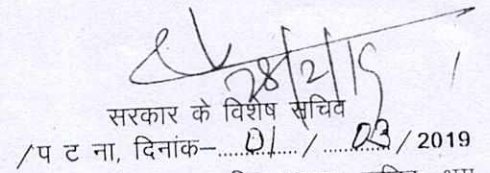 28/2/19
सरकार के विशेष सचिव
/प ट ना, दिनांक–....01..../....03..../2019